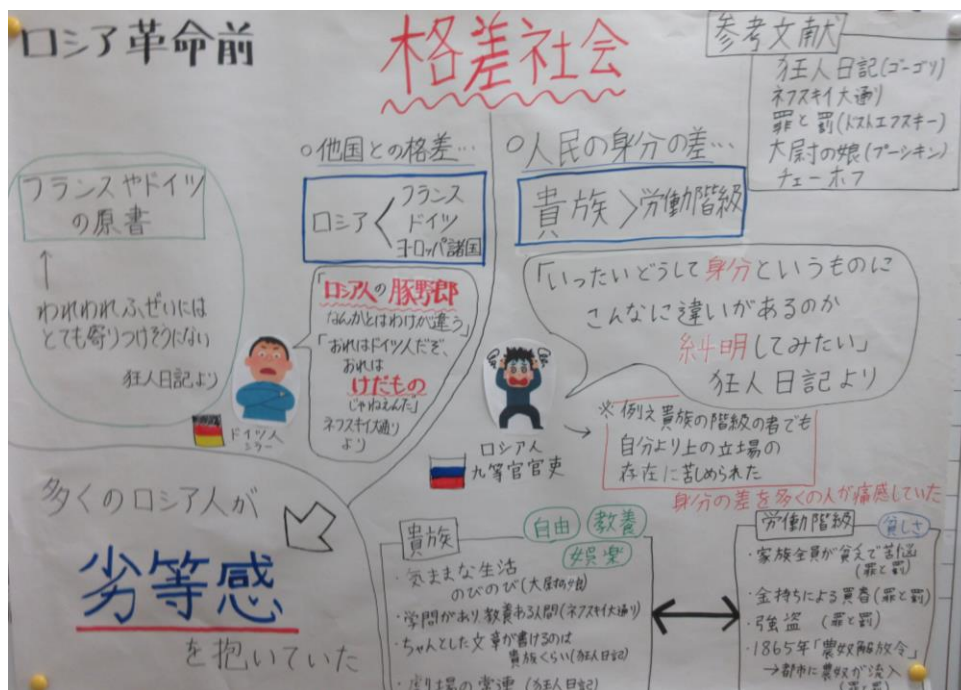 ロシア革命前
格差社会
参考文献
狂人日記(ゴーゴリ)
ネフスキイ大通り
罪と罰(ドストエフスキー)
大尉の娘(プーシキン)
チェーホフ
フランスやドイツ
の原書
↑
われわれふぜいには
とても寄りつけそうにない
狂人日記より
○他国との格差…
ロシア<フランス
ドイツ
ヨーロッパ諸国
「ロシア人の豚野郎
なんかとはわけが違う」
「おれはドイツ人だぞ、
おれは
けだもの
じゃねえんだ」
ネフスキイ大通り
より
ドイツ人
シラー
○人民の身分の差…
貴族>労働階級
「いったいどうして身分というものに
こんなに違いがあるのか
糾明してみたい」
狂人日記より
ロシア人
九等官官吏
→
※例え貴族の階級の者でも
自分より上の立場の
存在に苦しめられた
身分の差を多くの人が痛感していた
多くのロシア人が
劣等感
を抱いていた
貴族
自由
教養
娯楽
・気ままな生活
のびのび(大尉の娘)
・学問があり、教養ある人間(ネフスキイ大通り)
・ちゃんとした文章が書けるのは
貴族くらい(狂人日記)
・劇場の常連(狂人日記)
労働階級
貧しさ
・家族全員が貧乏で苦悩
(罪と罰)
・金持ちによる買春(罪と罰)
・強盗(罪と罰)
・1865年「農奴解放令」
→都市に農奴が流入
(罪と罰)